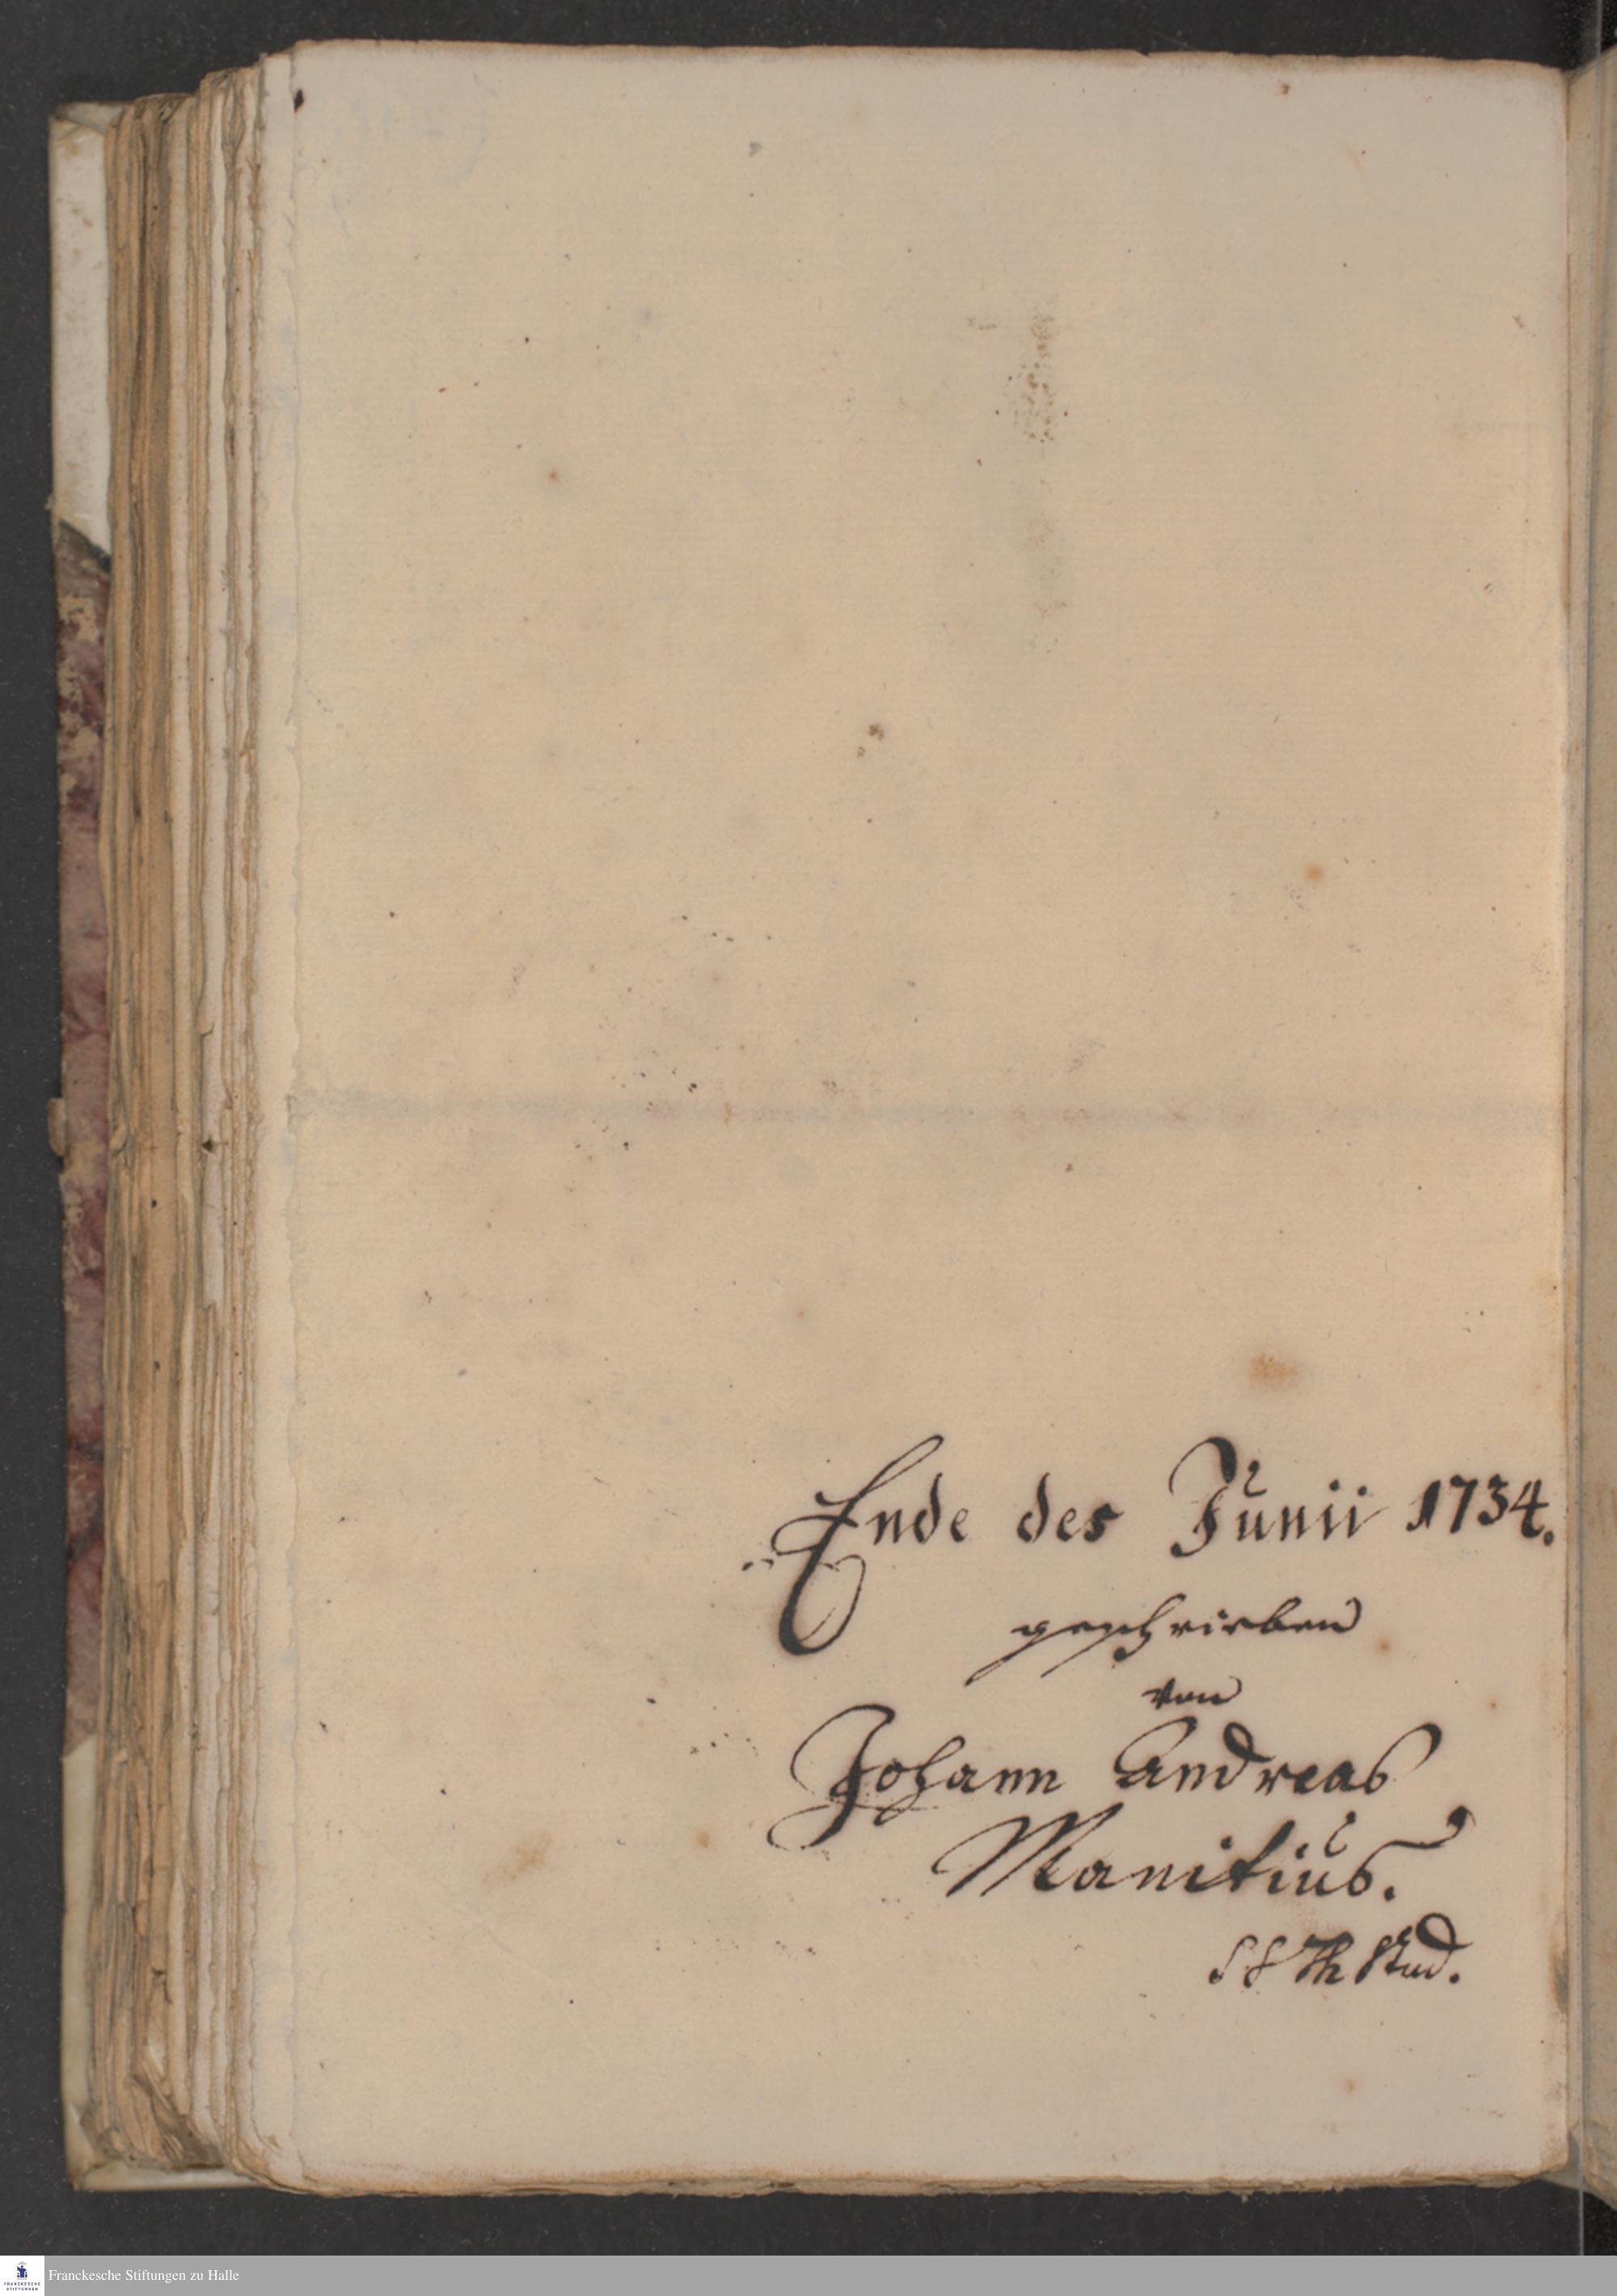 Ende des Junii 1734.
geschrieben
von
Johann Andreas
Manitius.
SS Th Stud.
Franckesche Stiftungen zu Halle
FRANCKESCHE
STIFTUNGEN